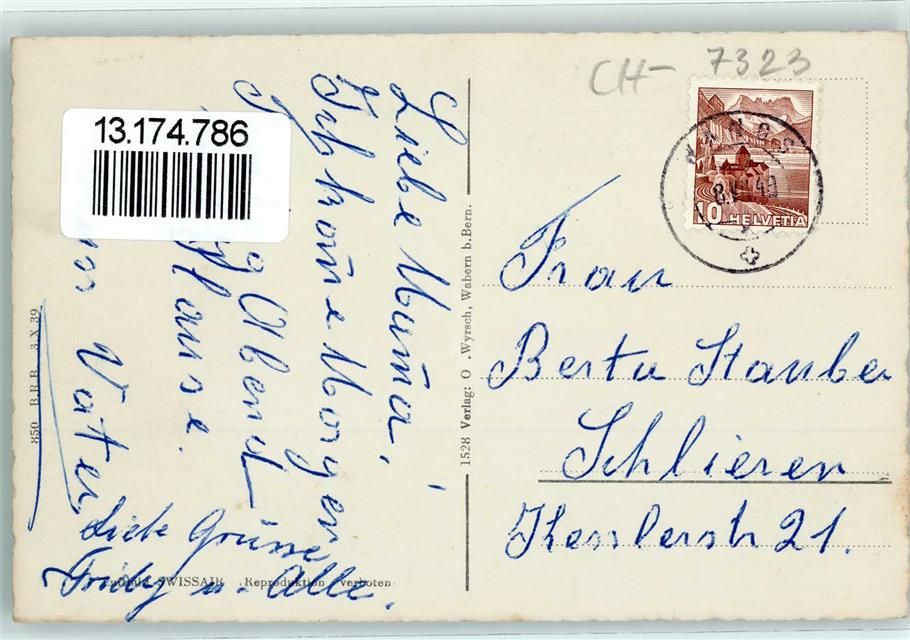 CH- 7323
13.174.786
Liebe Mama,
Ich kome Morgen
Abend
Hause.
Vater
Liebe Grüsse
Fridy u. Alle.
850 B.R.B. 3.X 39
SWISSAIR Reproduktion verboten
1528 Verlag: O. Wyrsch, Wabern b.Bern.
WANGS
10 HELVETIA
Frau
Berta Stauber
Schlieren
Kesslerstr 21.